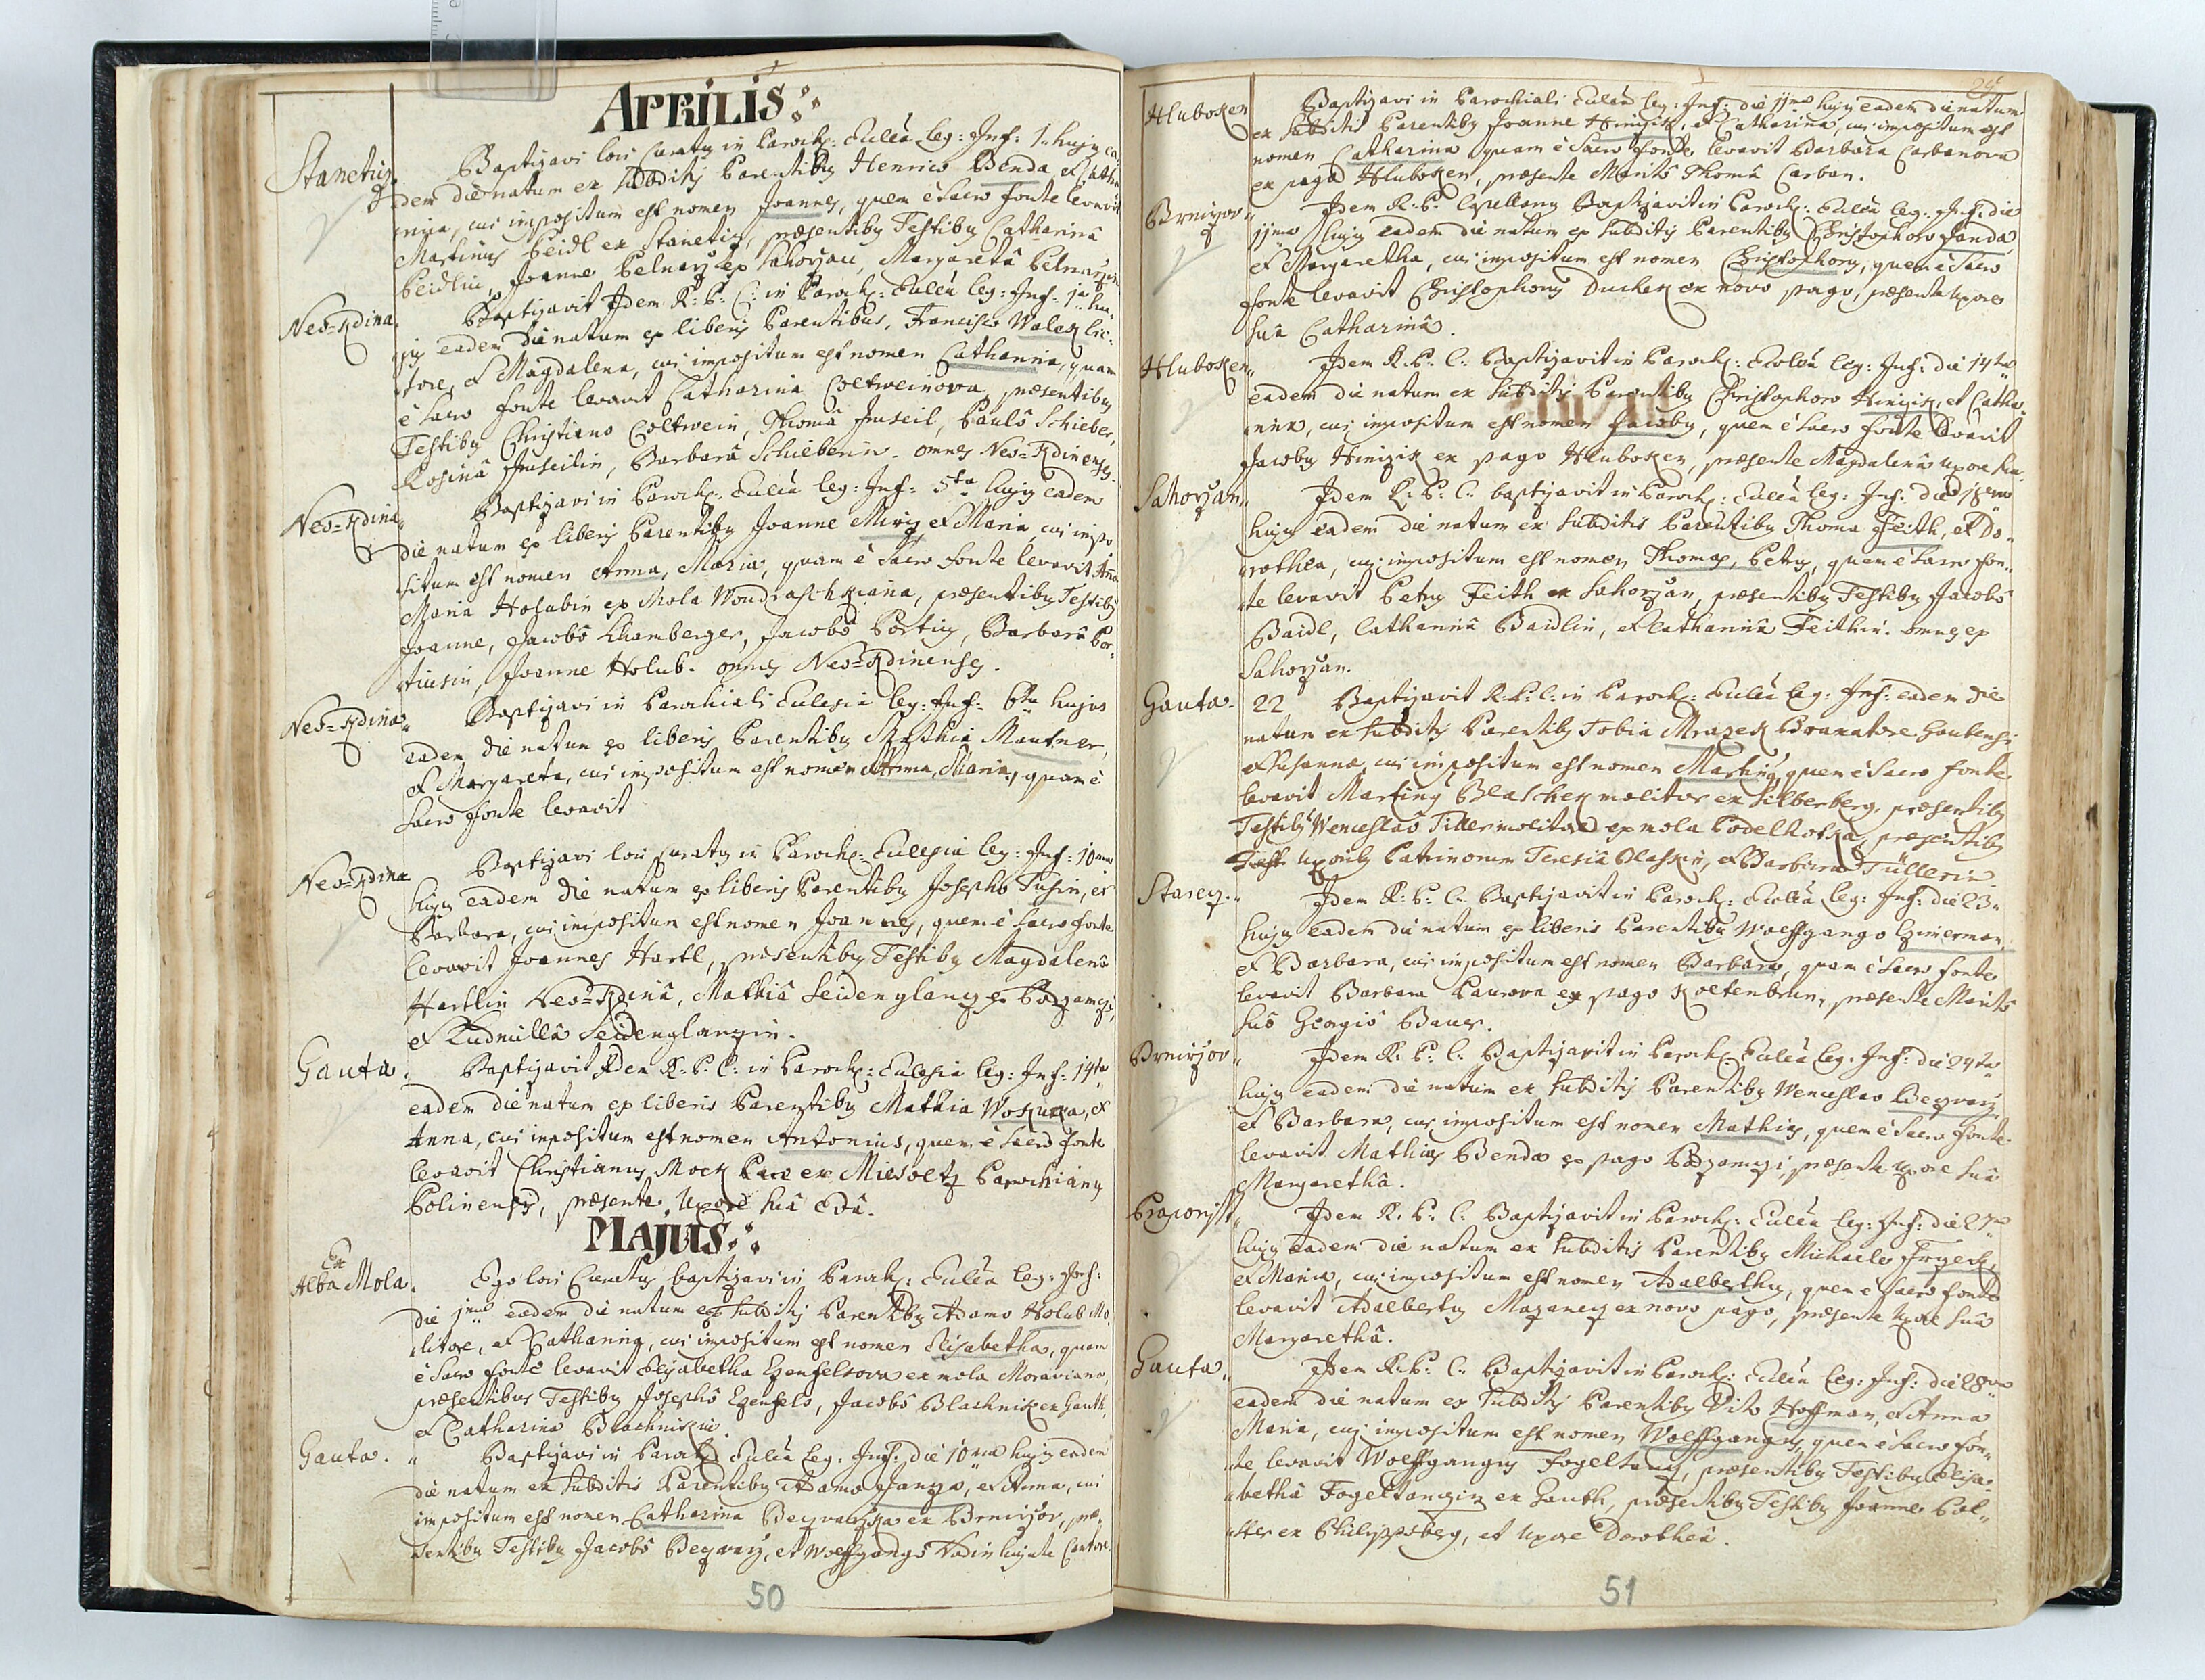 APRILIS
Stanetiz.
Baptizavi loci Curatus in Paroch: Ecclia leg: Inf: 1. hujus ea-
dem die natum ex subditis Parentibus Henrico Benda, et Catha
rina, cui impositum est nomen Joannes, quem è Sacro fonte levavit
Martinus Peidl ex Stanetiz, præsentibus Testibus Catharinâ
Peidlin, Joanne Pelnarz ex Sahorzan, Margaretâ
Neo=Kdina.
Baptizavit Idem R: P: C: in Paroch: Ecclia leg: Inf: hu-
jus eadem die natum ex liberis Parentibus, Francisco Walek lic-
tore, et Magdalena, cui impositum est nomen Catharina, quam
è Sacro fonte levavit Catharina Coltweinova, præsentibus
Testibus Christiano Coltwein, Thomâ Inseil, Paulô Schieber,
Rosinâ Inseilin, Barbarâ Schieberin. omnes Neo=Kdinenses.
Neo=Kdina
Baptizavi in Paroch: Ecclia leg: Inf: 5ta hujus eadem
die natum ex liberis Parentibus Joanne Miriz et Maria, cui impo
situm est nomen Anna, Maria, quam è Sacro fonte levavit Anna
Maria Holubin ex Mola Wondraschkiana, præsentibus Testibus
Joanne, Jacobô Khamberger, Jacobô Portig, Barbarâ Por-
Joanne Holub. omnes Neo=Kdinenses.
Neo=Kdina
Baptizavi in Parochiali Ecclesia leg: Inf: 6ta hujus
eadem die natum ex liberis Parentibus Mathia Mautner,
et Margareta, cui impositum est nomen Anna, Maria, quam è
Sacro fonte levavit
Neo=Kdina
Baptizavi loci curatus in Paroch: Ecclesia leg: Inf: 10ma
hujus eadem die natum ex liberis Parentibus Josepho Tusin, et
Barbara, cui impositum est nomen Joannes, quem è Sacro fonte
levavit Joannes Hartl, præsentibus Testibus Magdalenâ
Hartlin Neo=Kdinâ, Mathiâ Seidenglanz ex
et Ludmillâ Seidenglanzin.
Gauta.
Baptizavit Idem R: P: C: in Paroch: Ecclesia leg: Inf: 14ta
eadem die natum ex liberis Parentibus Mathia Woskuka, et
Anna, cui impositum est nomen Antonius, quem è Sacro fonte
levavit Christianus Mock ex Miesoltz Parochianus
Polinensis, præsente Uxore suâ Evâ.
MAJUS
Ex
Alba Mola.
Ego loci Curatus baptizavi in Paroch: Ecclia leg: Inf:
die 1ma eadem die natum ex subditis Parentibus Adamo Holub Mo
litore, et Catharina, cui impositum est nomen Elisabetha, quam
è Sacro fonte levavit Elisabetha Ezenfelsova ex mola Moraviana,
præsentibus Testibus Josephô Ezenfels, Jacobô Blachnik ex Gauth,
et Catharina Blachnikin.
Gauta.
Baptizavi in Paroch: Ecclia leg: Inf: die 10ma hujus eadem
die natum ex subditis Parentibus Adamo Janza, et Anna, cui
impositum est nomen Catharina Beqvarzka ex Brnirzov, præ
sentibus Testibus Jacobô Beqvarz, et Wolffgangô Vadin hujate Cantore.
50
Hluboken
Baptizavi in Parochiali Ecclia leg: Inf: die 11ma hujus eadem die natum
ex subditis Parentibus Joanne Hinizik, et Catharina, cui impositum est
nomen Catharina quam è Sacro fonte levavit Barbara Carbanova
ex pago Hluboken, præsente Maritô Thomâ Carban.
Brnirzov
Idem R: P: Capellanus Baptizavit in Paroch: Ecclia leg: Inf: die
11ma hujus eadem die natum ex subditis Parentibus Christophoro Janda
et Margaretha, cui impositum est nomen Christophorus, quem è Sacro
fonte levavit Christophorus Duchek ex novo pago, præsente Uxore
suâ Catharinâ.
Hluboken
Idem R: P: C: Baptizavit in Paroch: Ecclia leg: Inf: die 14ta
eadem die natum ex subditis Parentibus Christophoro Hinizik, et Catha
rina, cui impositum est nomen Jacobus, quem è Sacro fonte levavit
Jacobus Hinizik ex pago Hluboken, præsente Magdalenâ uxore sua
Sahorzan
Idem R: P: C: baptizavit in Paroch: Ecclia leg: Inf: die 18va
hujus eadem die natum ex subditis Parentibus Thoma Feith, et Do
rothea, cui impositum est nomen Thomas, Petrus, quem è Sacro fon
te levavit Petrus Feith ex Sahorzan, præsentibus Testibus Jacobô
Baidl, Catharinâ Baidlin, et Catharinâ Feithin. omnes ex
Sahorzan.
Gauta.
22 Baptizavit R: P: C: in Paroch: Ecclia leg: Inf: eadem die
natum ex subditis Parentibus Tobia Mrazek Braxatore Gautensi
et Susanna, cui impositum est nomen Martinus, quem è Sacro fonte
levavit Martinus Blaschek molitor ex Silberberg, præsentibus
Testibus Wenceslaô Tiller molitore ex mola Podelhotka, præsentibus
uxoribus Patrinorum Teresiâ Blaskin, et Barbara Tüllerin
Starez.
Idem R: P: C: Baptizavit in Paroch: Ecclia leg: Inf: die 23
hujus eadem die natum ex liberis Parentibus Wolffgango Czimerman
et Barbara, cui impositum est nomen Barbara, quam è Sacro fonte
levavit Barbara Paurova ex pago Koltenbrun, præsente Maritô
suô Georgiô Baur.
Brnirzov
Idem R: P: C: Baptizavit in Paroch: Ecclia leg: Inf: die 24ta
hujus eadem die natum ex subditis Parentibus Wenceslao Beqvarz
et Barbara, cui impositum est nomen Mathias, quem è Sacro fonte
levavit Mathias Benda ex pago præsente Uxore suâ
Margarethâ.
Idem R: P: C: Baptizavit in Paroch: Ecclia leg: Inf: die 27
hujus eadem die natum ex subditis Parentibus Michaele
et Maria, cui impositum est nomen Adalberthus, quem è Sacro fonte
levavit Adalbertus Mazanez ex novo pago, præsente Uxore suâ
Margarethâ.
Gauta
Idem R: P: C: Baptizavit in Paroch: Ecclia leg: Inf: die 28va
eadem die natum ex subditis Parentibus Vito Hoffman, et Anna
Maria, cui impositum est nomen Wolffgangus, quem è Sacro fon
te levavit Wolffgangus Fogeltanz, præsentibus Testibus Elisa
bethâ Fogeltanzin ex Gauth, præsentibus Testibus Joanne Pol
ster ex Philippsberg, et Uxore Dorotheâ.
51